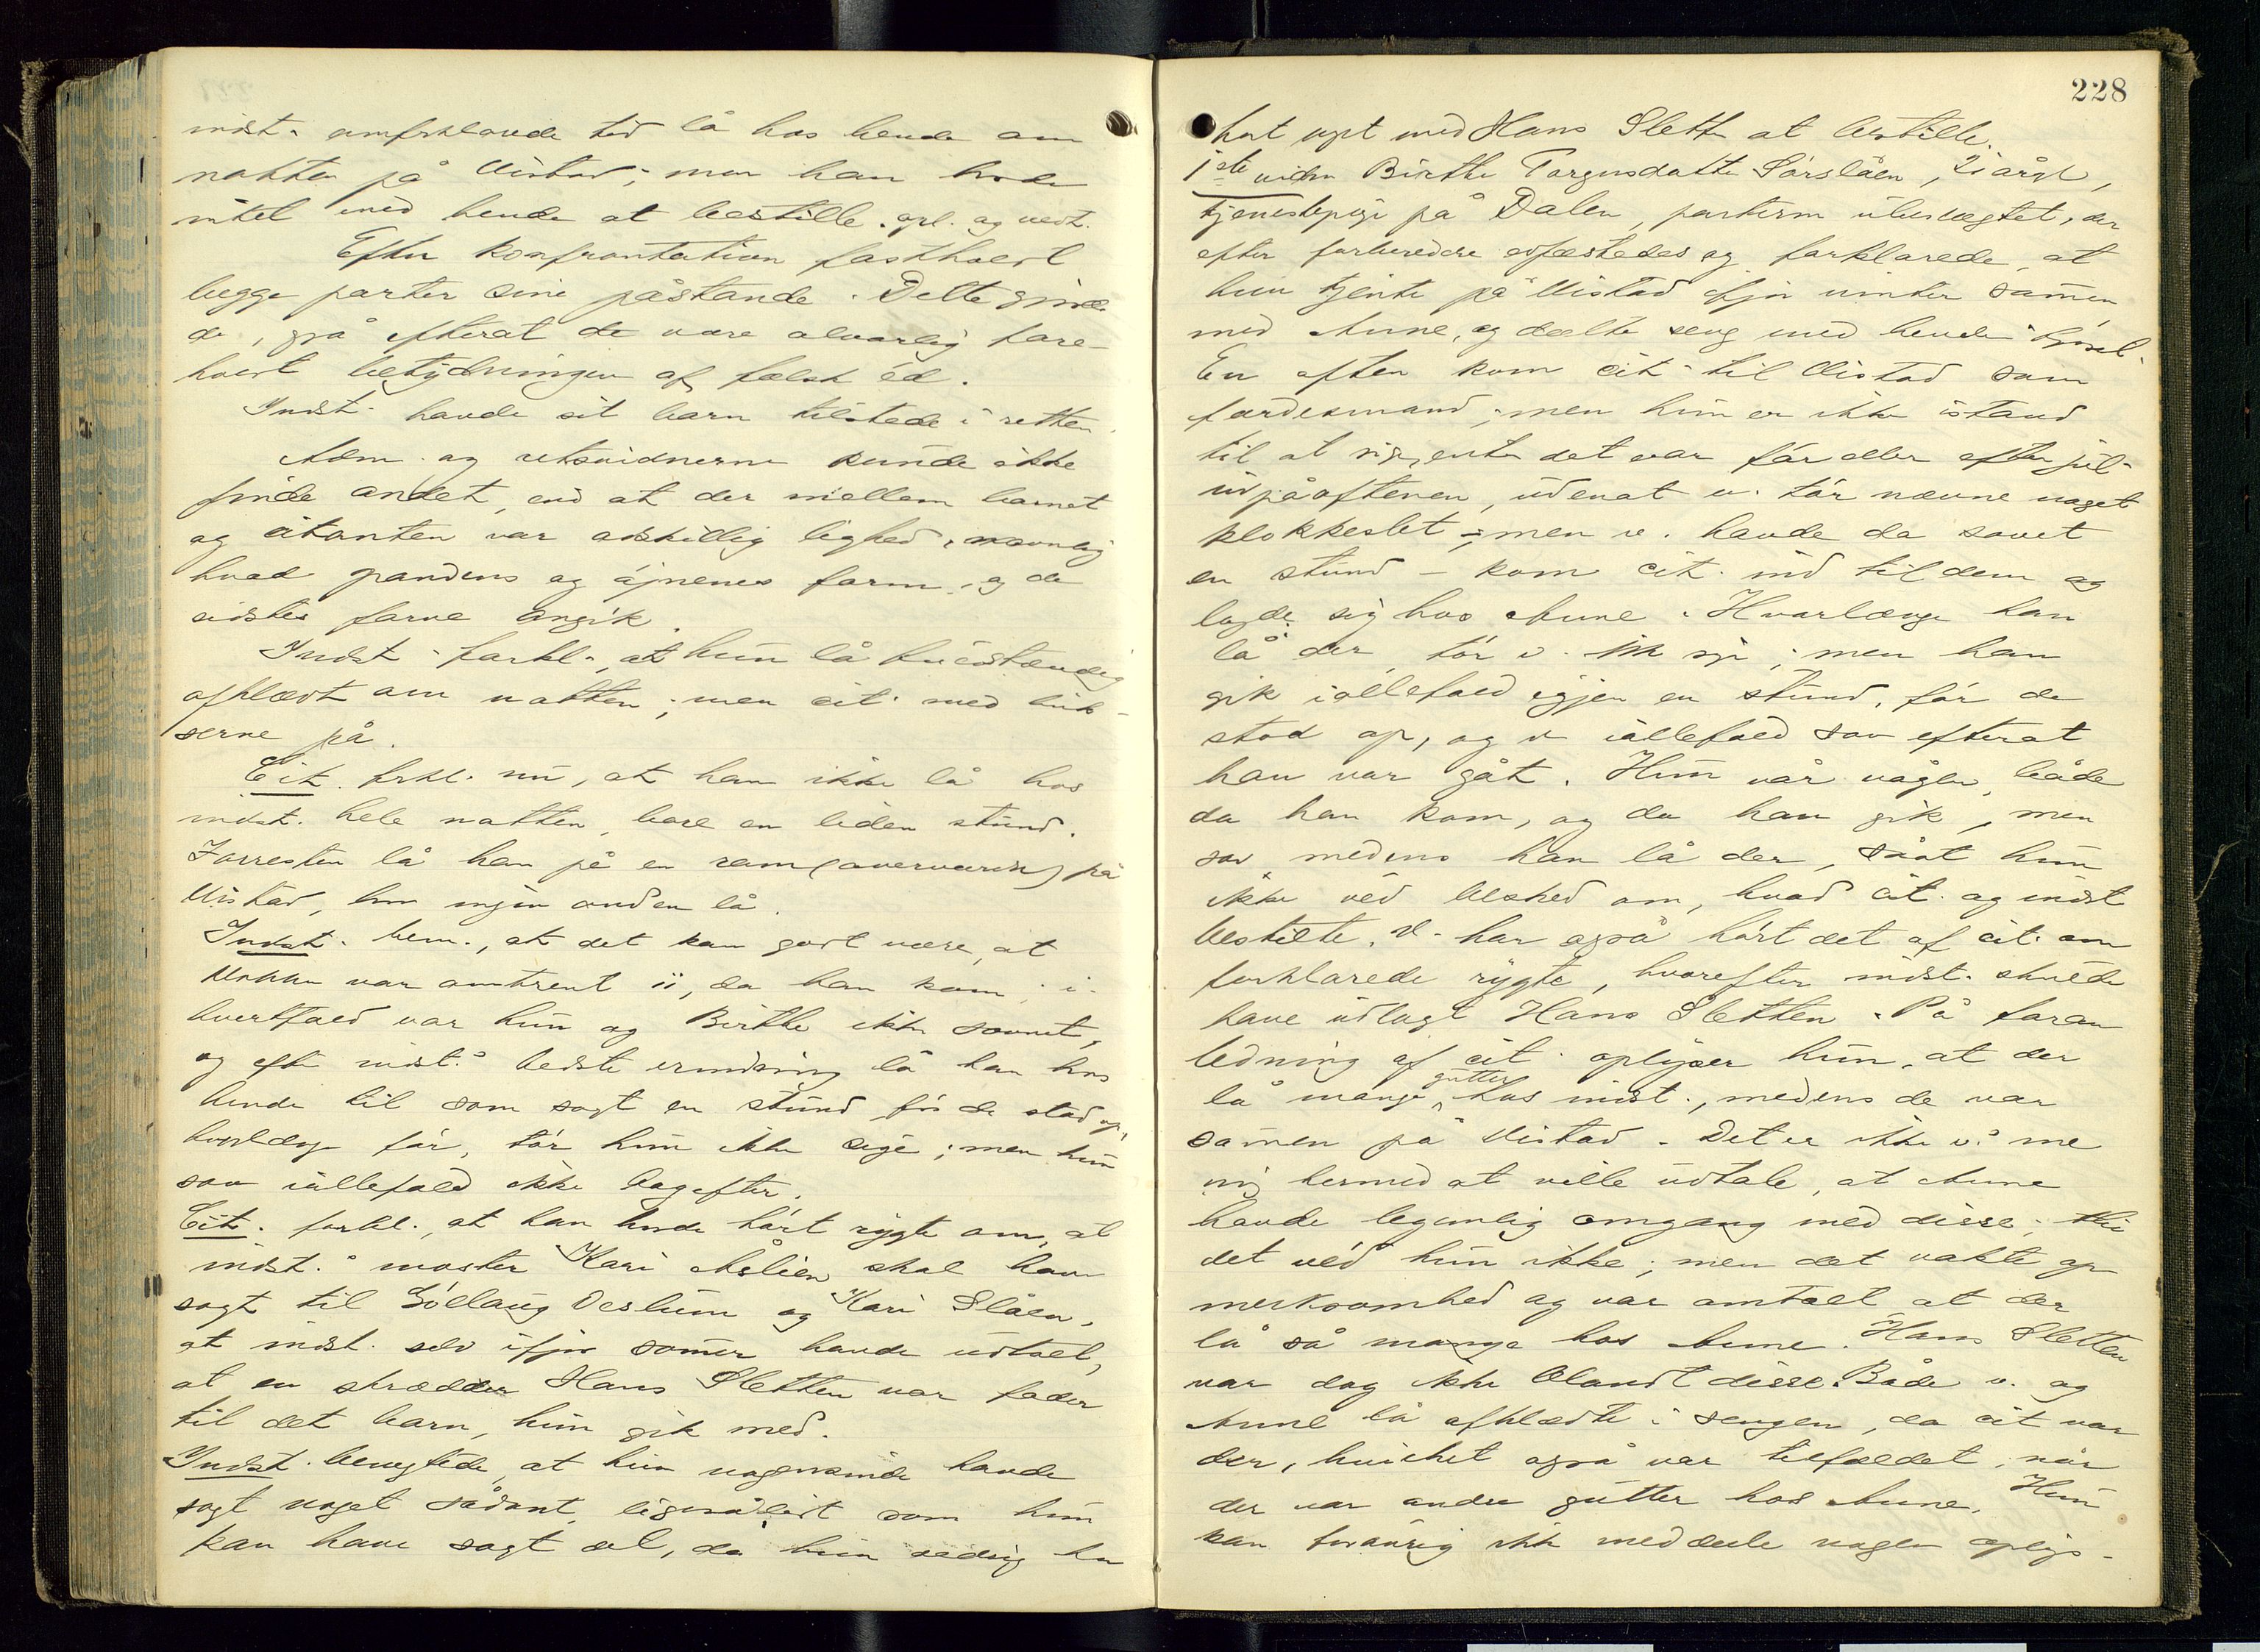 indst. omforklarede tid lå hos hende om
natten på Vistad; men han havde
intet med hende at bestille. opl. og vedt.
Efter konfrontation fastholdt
begge parter sine påstande. Dette gjorde
de, også efterat de vare alvorlig fore-
holdt betydningen af falsk éd.
Indst. havde sit barn tilstede i retten.
Adm. og retsvidnerne kunde ikke
finde andet, end at der mellem barnet
og citanten var adskillig lighed, navnlig
hvad pandens og øjnenes form, og de
sidstes farve angik.
Indst. forkl., at hun lå fuldstændig
afklædt om natten; men cit. med buk-
serne på.
Cit. forkl. nu, at han ikke lå hos
indst. hele natten, bare en liden stund.
Forresten lå han på en ram (oververelse) på
Vistad, hvor ingen anden lå.
Indst. bem., at det kan godt være, at
klokken var omtrent 11, da han kom; i-
hvertfald var hun og Birthe ikke sovnet,
og efter indst.s bedste erindring lå han hos
hende til som sagt en stund før de stod op,
hvorlænge før, tør hun ikke sige; men hun
sov iallefald ikke bagefter.
Cit. forkl., at han havde hørt rygte om, at
indst.s moster Kari Åslien skal have
sagt til Gøllaug Veslum og Kari Slåen,
at indst. selv ifjor sommer havde udtalt,
at en skrædder Hans Sletten var fader
til det barn, hun gik med.
Indst. benegtede, at hun nogensinde havde
sagt noget sådant, ligesålidt som hun
kan have sagt det, da hun aldrig har
228
hat nogt med Hans Sletten at bestille.
1ste vidne Birthe Torgersdatter Sørslåen, 21 årgl.,
tjenestepige på Dalen, parterne ubeslægtet, der
efter forberedelse edfæstedes og forklarede, at
hun tjente på Vistad ifjor vinter sammen
med Anne, og delte seng med hende i fjøset.
En aften kom cit. til Vistad som
færdesmand; men hun er ikke istand
til at sige, enten det var før eller efter jul.
Udpåaftenen, udenat v. tør nævne noget
klokkeslet – men v. havde da sovet
en stund – kom cit. ind til dem og
lagde sig hos Anne. Hvorlænge han
lå der, tør v. ikke sige; men han
gik iallefald igjen en stund, før de
stod op, og v. iallefald sov efterat
han var gåt. Hun var vågen, både
da han kom, og da han gik, men
sov medens han lå der, såat hun
ikke véd besked om, hvad cit. og indst.
bestilte. V. har også hørt det af cit. om
forklarede rygte, hvorefter indst. skulde
have udlagt Hans Sletten. På foran
ledning af cit. oplyser hun, at der
lå mange gutter hos indst., medens de var
sammen på Vistad. Det er ikke v.s me
ning hermed at ville udtale, at Anne
havde legemlig omgang med disse; thi
det véd hun ikke; men det vakte op
merksomhed og var omtalt, at der
lå så mange hos Anne. Hans Sletten
var dog ikke blandt disse. Både v. og
Anne lå afklædte i sengen, da cit. var
der, hvilket også var tilfældet, når
der var andre gutter hos Anne. Hun
kan forøvrig ikke meddele nogen oplys-